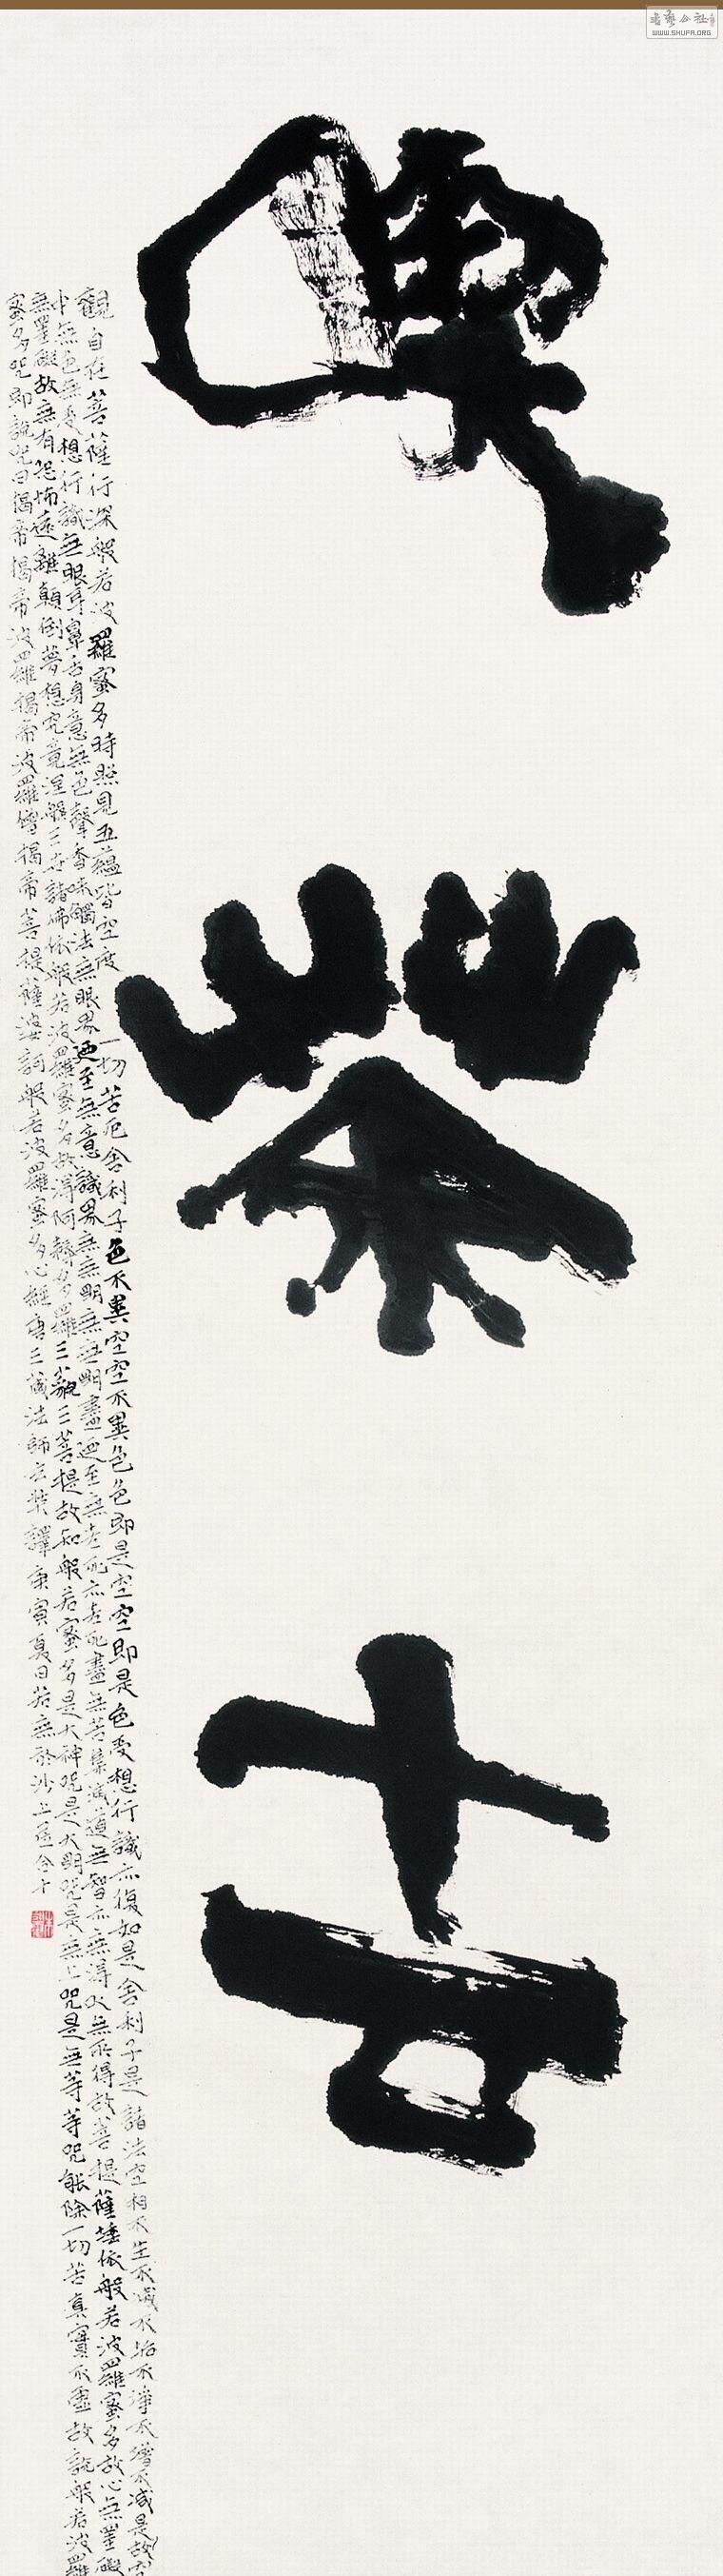 喫茶去
觀自在菩薩行深般若波羅蜜多時照見五蘊皆空度一切苦厄舍利子色不異空空不異色色即是空空即是色受想行識亦復如是舍利子是諸法空相不生不滅不垢不淨不增不減是故空
中無色無受想行識無眼耳鼻舌身意無色聲香味觸法無眼界迺至無意識界無無明無無明盡迺至無老死亦老死盡無苦集滅道無智亦無得以無所得故菩提薩埵依般若波羅蜜多故心無罣礙
無罣礙故無有恐怖遠離顛倒夢想究竟涅槃三世諸佛依般若波羅蜜多故得阿耨多羅三藐三菩提故知般若蜜多是大神咒是大明咒是無上咒是無等等咒能除一切苦真實不虛故說般若波羅
蜜多咒即說咒曰揭帝揭帝波羅揭帝波羅僧揭帝菩提薩婆訶般若波羅蜜多心經唐三藏法師玄奘譯庚寅夏日若無於沙上合十
書藝公社
WWW.SHUFA.ORG